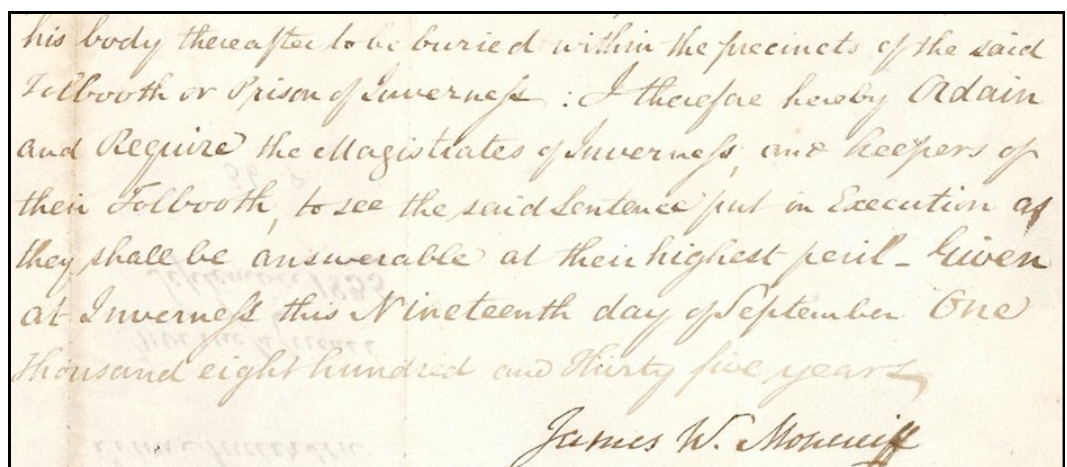 his body thereafter to be buried within the precincts of the said
Tolbooth or Prison of Inverness : I therefore hereby Adain
and Require the Magistrates of Inverness, and keepers of
their Tolbooth, to see the said Sentence put in Execution as
they shall be answerable at their highest peril _ Given
at Inverness this Nineteenth day of September One
Thousand eight hundred and Thirty five years
James W. Moncreiff